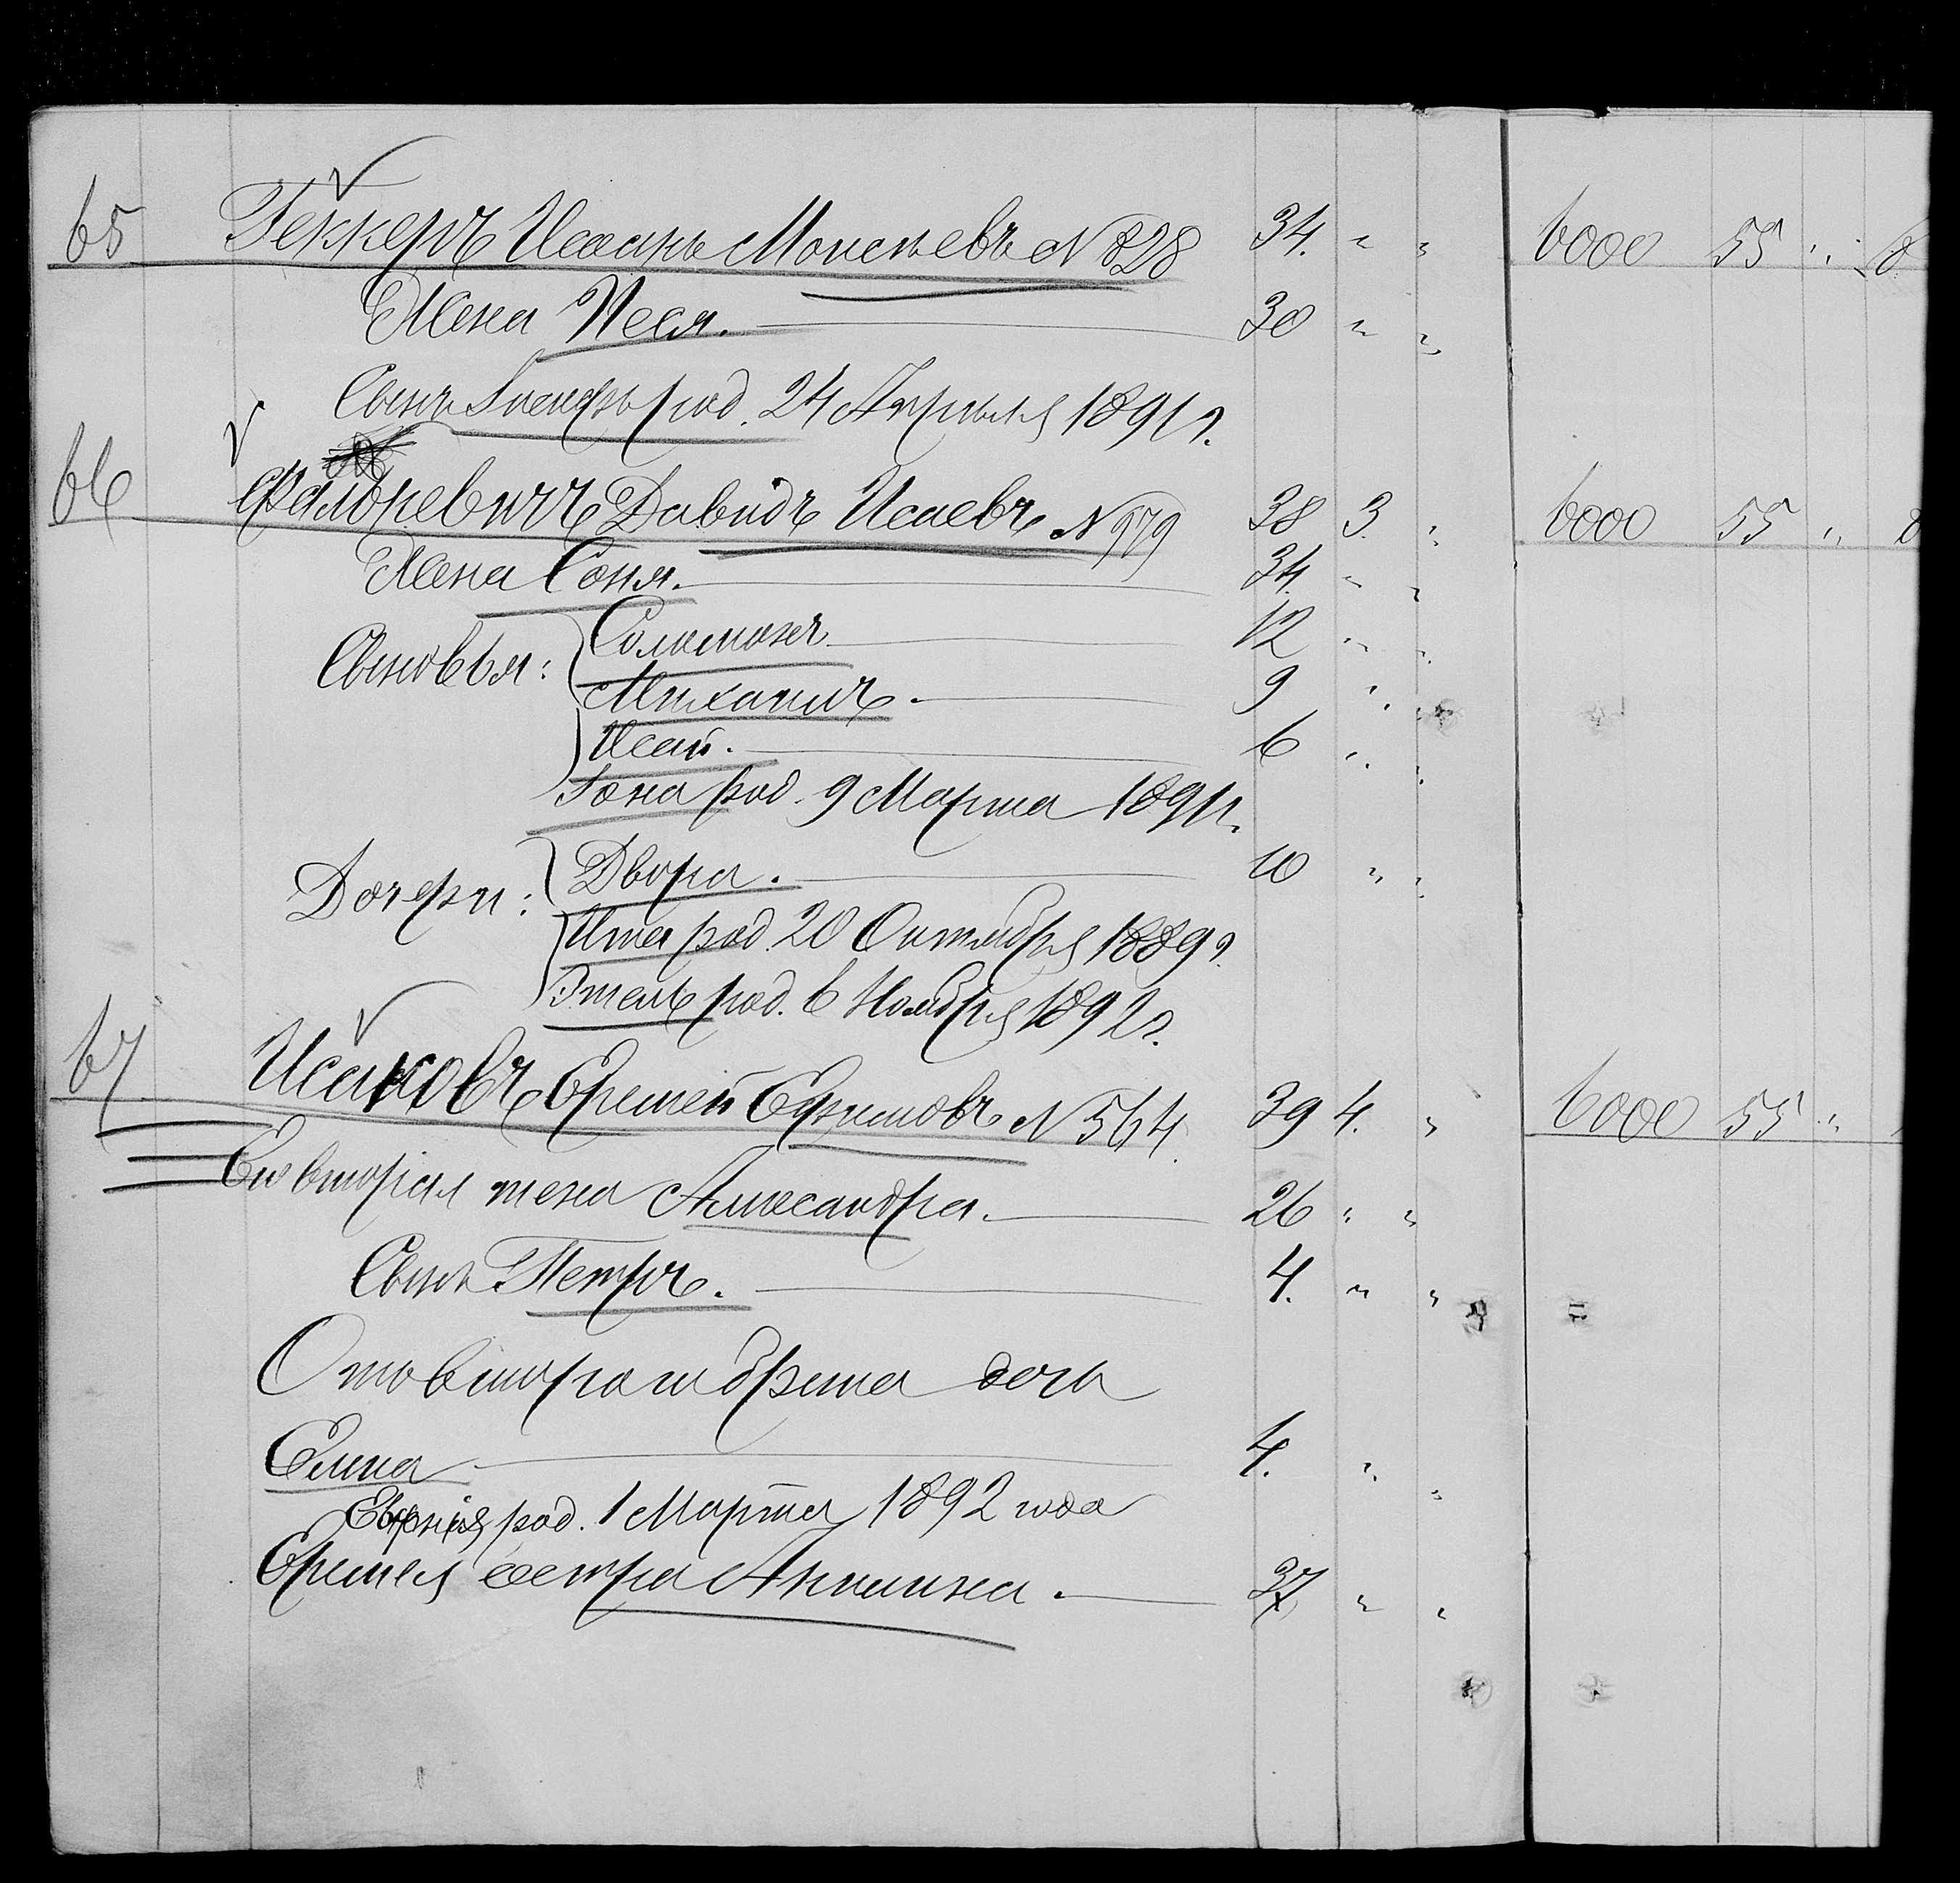 65 Геккеръ Исаакъ Моисѣевъ N 828 34. " " 6000 55 " " 8
Жена Песя. 30 " "
Сынъ Іосифъ род. 24 Апрѣля 1891 г.
66 Давидъ Исаевъ N 979 38 3. " 6000 55 " " 8
Жена Соня. 34. " "
Сыновья: Соломонъ 12 " "
Михаилъ. 9 " "
Исай. 6 " "
Іона род. 9 Марта 1891 г.
Дочери: Двора. 10 " "
Ита род. 20 Октября 1889 г.
Этель род. 6 Ноября 1892 г.
67 Исаковъ Еремей Ефимовъ N 564. 39 4. " 6000 55 " "
Его вторая жена Александра. 26 " "
Сынъ Петръ. 4. " "
Отъ втораго брака дочь
Елена 4. " "
род. 1 Марта 1892 года
Еремея сестра Акилина. 37 " "